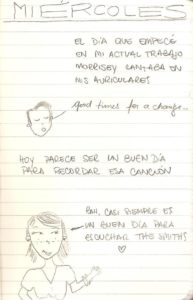 MIÉRCOLES
EL DÍA QUE EMPECÉ
EN MI ACTUAL TRABAJO
MORRISEY CANTABA EN
MIS AURICULARES
good times for a change...
HOY PARECE SER UN BUEN DÍA
PARA RECORDAR ESA CANCIÓN
BAH, CASI SIEMPRE ES
UN BUEN DÍA PARA
ESCUCHAR THE SMITHS